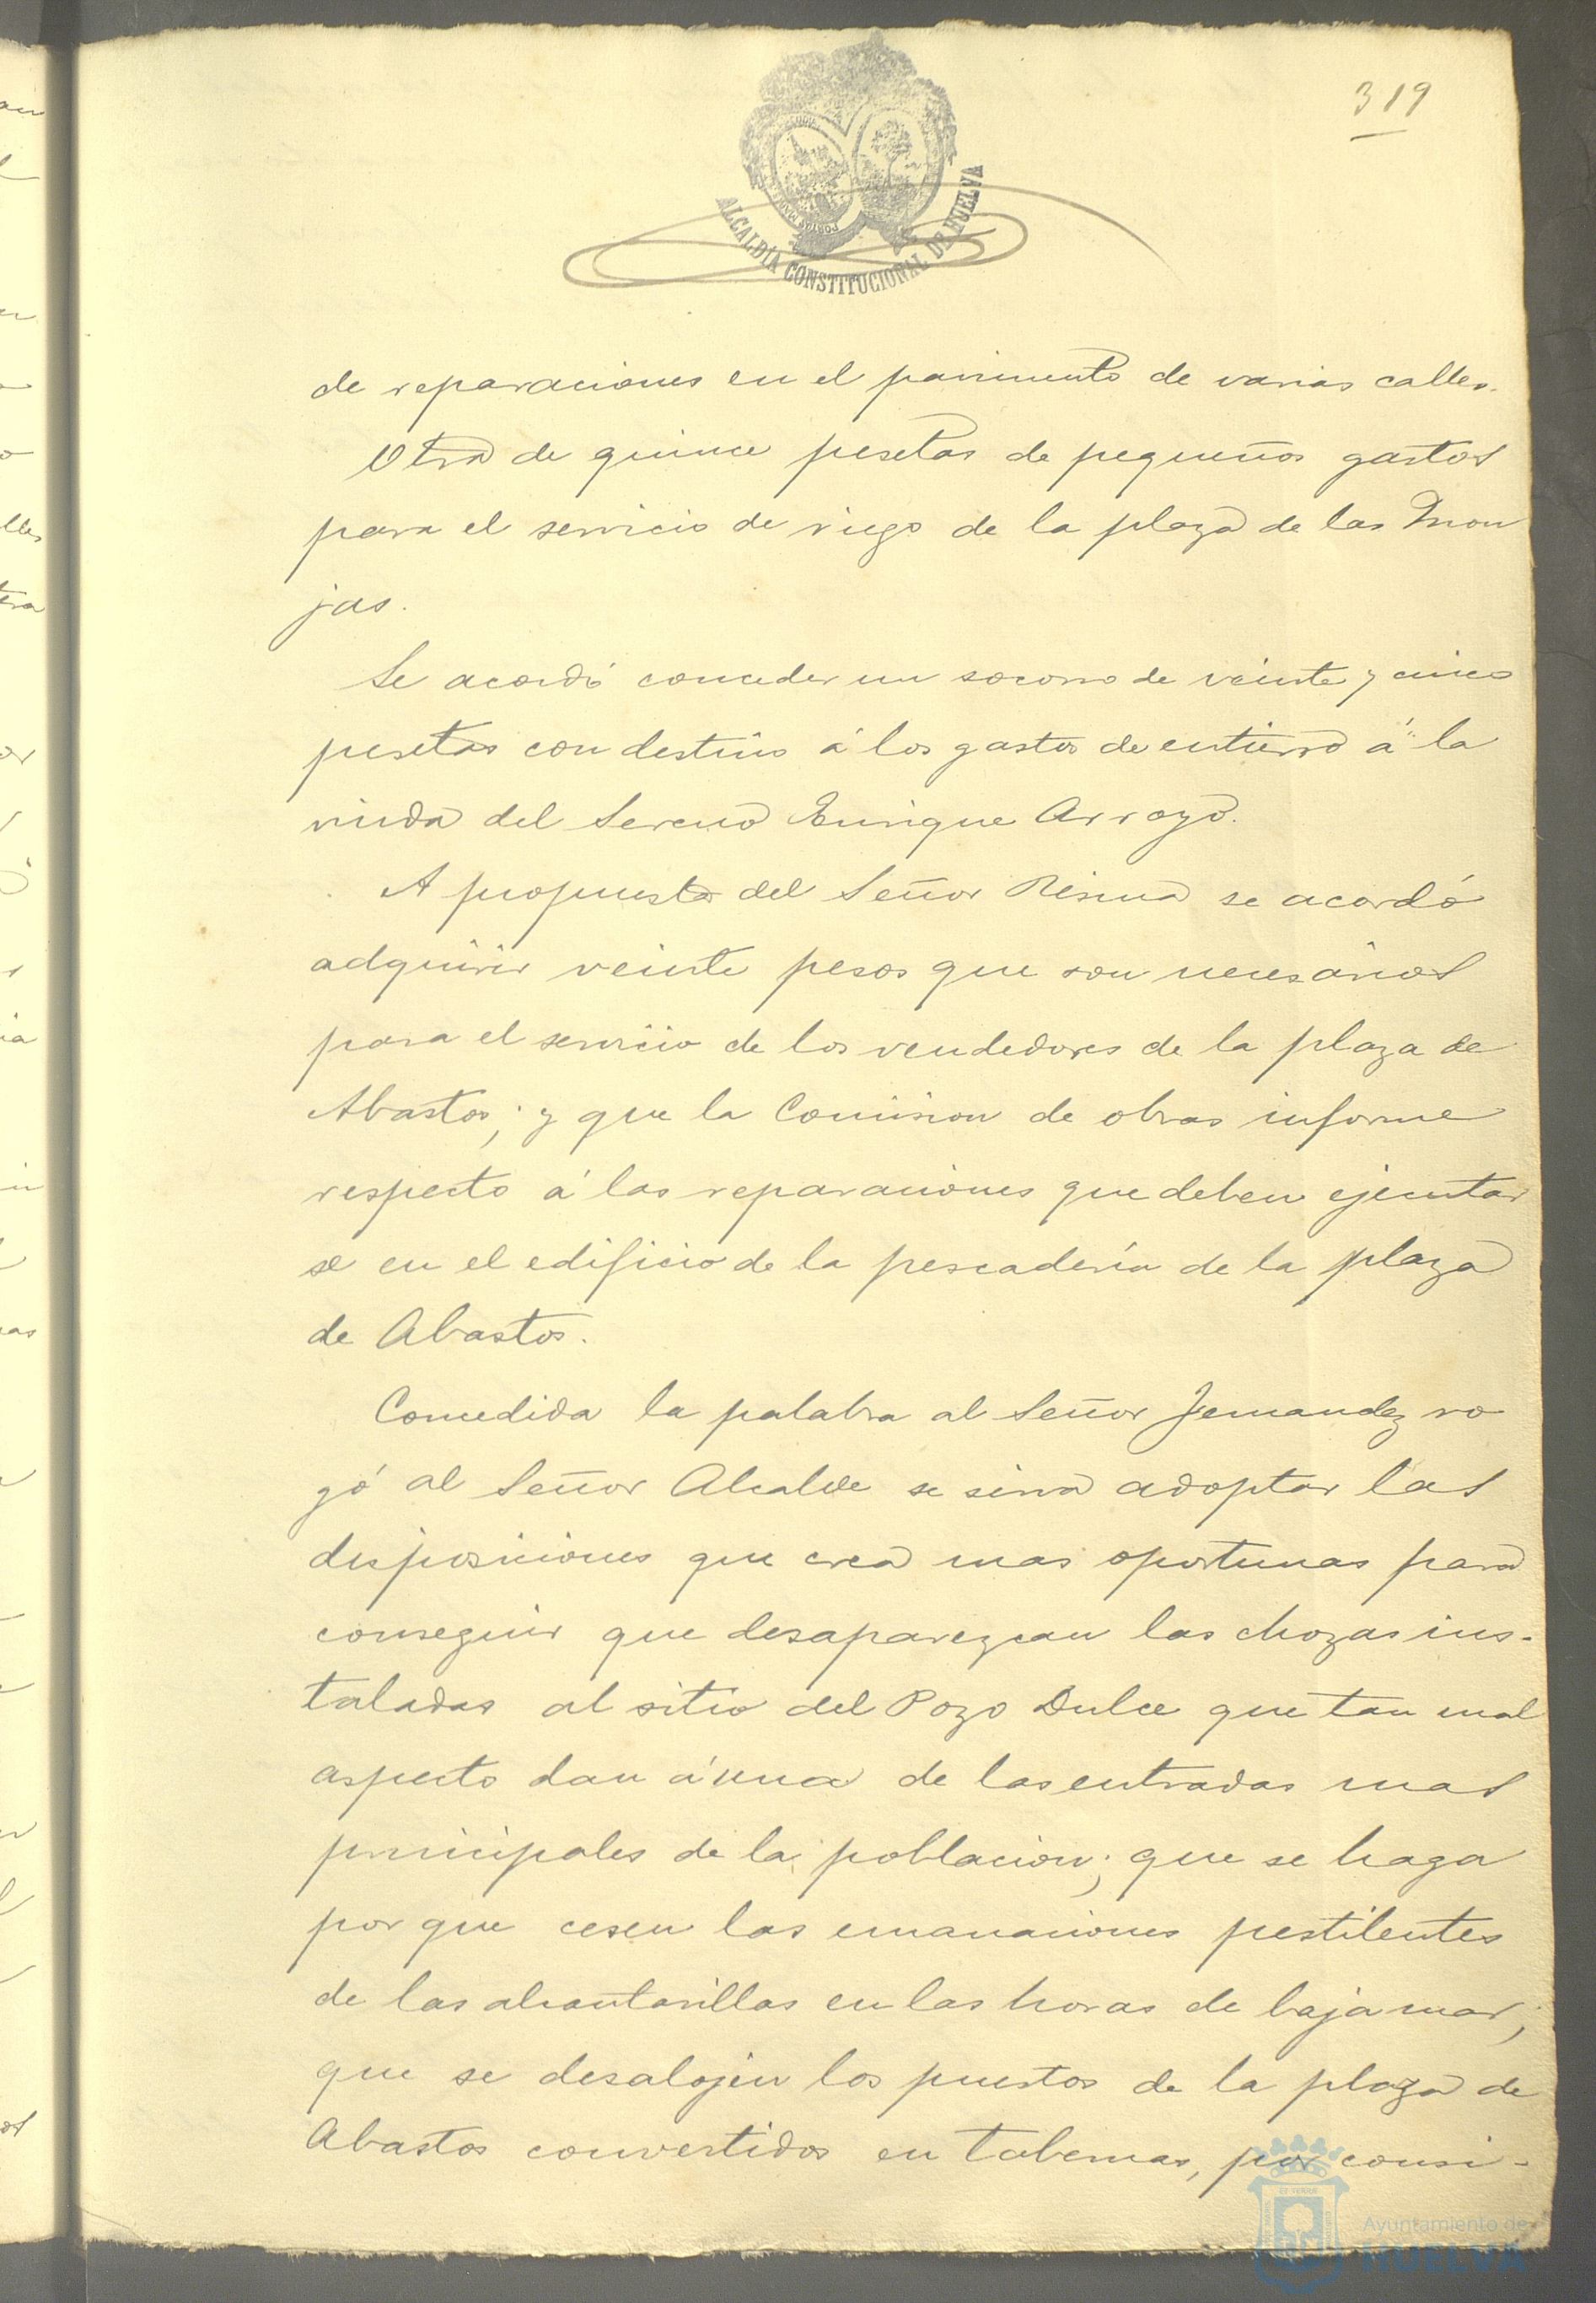 319
ALCALDÍA CONSTITUCIONAL DE HUELVA
de reparaciones en el pavimento de varias calles.
Otra de quince pesetas de pequeños gastos
para el servicio de riego de la plaza de las Mon
jas.
Se acordó conceder un socorro de veinte y cinco
pesetas con destino á los gastos de entierro á la
viuda del Sereno Enrique Arroyo.
A propuesta del Señor se acordó
adquirir veinte pesos que son necesarios
para el servicio de los vendedores de la plaza de
Abastos; y que la Comision de obras informe
respecto á las reparaciones que deben ejecutar
se en el edificio de la pescadería de la plaza
de Abastos.
Concedida la palabra al Señor Fernandez ro
gó al Señor Alcalde se sirva adoptar las
disposiciones que crea mas oportunas para
conseguir que desaparezcan las chozas ins-
taladas al sitio del Pozo Dulce que tan mal
aspecto dan á una de las entradas mas
principales de la poblacion; que se haga
por que cesen las emanaciones pestilentes
de las alcantarillas en las horas de baja mar;
que se desalojen los puestos de la plaza de
Abastos convertidos en tabernas, por consi-
Ayuntamiento de
HUELVA